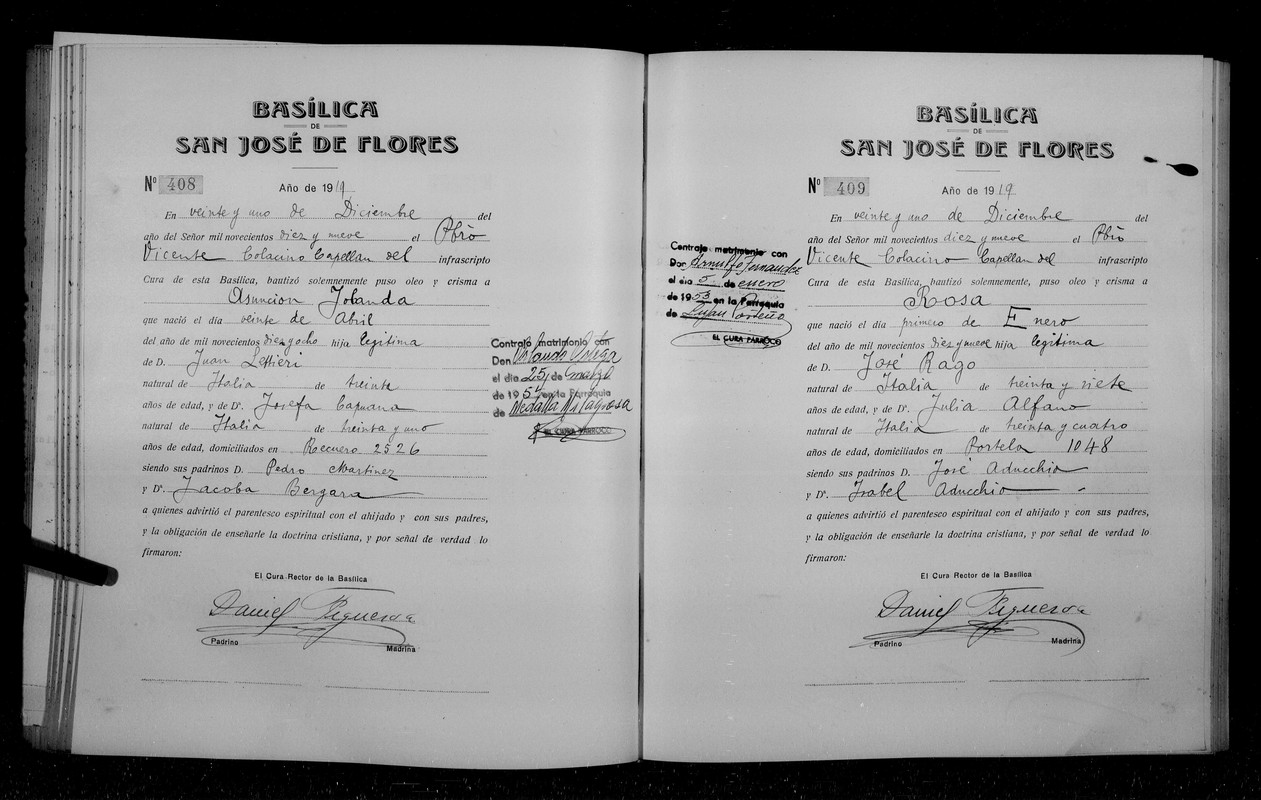 BASÍLICA
DE
SAN JOSÉ DE FLORES
Nº 408 Año de 1919
En veinte y uno de Diciembre del
año del Señor mil novecientos diez y nueve el Pbro
Vicente Colacino Capellan del infrascripto
Cura de esta Basílica, bautizó solemnemente puso oleo y crisma a
Asuncion Jolanda
que nació el día veinte de Abril
del año de mil novecientos diez y ocho hija legitima
de D. Juan
natural de Italia de treinta
años de edad, y de Dª. Josefa Capuana
natural de Italia de treinta y uno
años de edad, domiciliados en Recuero 2526
siendo sus padrinos D. Pedro Martinez
y Dª. Jacoba Bergara
a quienes advirtió el parentesco espiritual con el ahijado y con sus padres,
y la obligación de enseñarle la doctrina cristiana, y por señal de verdad lo
firmaron:
El Cura Rector de la Basílica
Daniel Figueroa
Padrino
Madrina
Contrajo matrimonio con
Don
el día 25 de Marzo
de 195 en la Parroquia
de Medalla Milagrosa
EL CURA PARROCO
BASÍLICA
DE
SAN JOSÉ DE FLORES
Nº 409 Año de 1919
En veinte y uno de Diciembre del
año del Señor mil novecientos diez y nueve el Pbro
Vicente Colacino Capellan del infrascripto
Cura de esta Basílica, bautizó solemnemente, puso oleo y crisma a
Rosa
que nació el día primero de Enero
del año de mil novecientos diez y nueve hija legitima
de D. José Rago
natural de Italia de treinta y siete
años de edad, y de Dª. Julia Alfano
natural de Italia de treinta y cuatro
años de edad, domiciliados en Portela 1048
siendo sus padrinos D. José Aducchio
y Dª. Isabel Aducchio
a quienes advirtió el parentesco espiritual con el ahijado y con sus padres,
y la obligación de enseñarle la doctrina cristiana, y por señal de verdad lo
firmaron:
El Cura Rector de la Basílica
Daniel Figueroa
Padrino
Madrina
Contrajo matrimonio con
Don Arnulfo Fernandez
el día 5 de enero
de 1953 en la Parroquia
de Lujan Porteño
EL CURA PARROCO